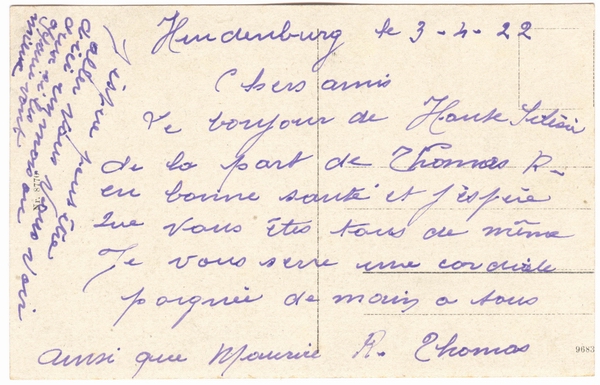 Hindenburg le 3-4-22
Chers amis
Le bonjour de Haute Silésie
de la part de Thomas R-
en bonne santé et j'espère
que vous êtes tous de même
Je vous serre une cordiale
poignée de main a tous
ainsi que Maurice R. Thomas
J'espère
aller vous voir
dans un mois ou
mieux
Nr. 8770
9683